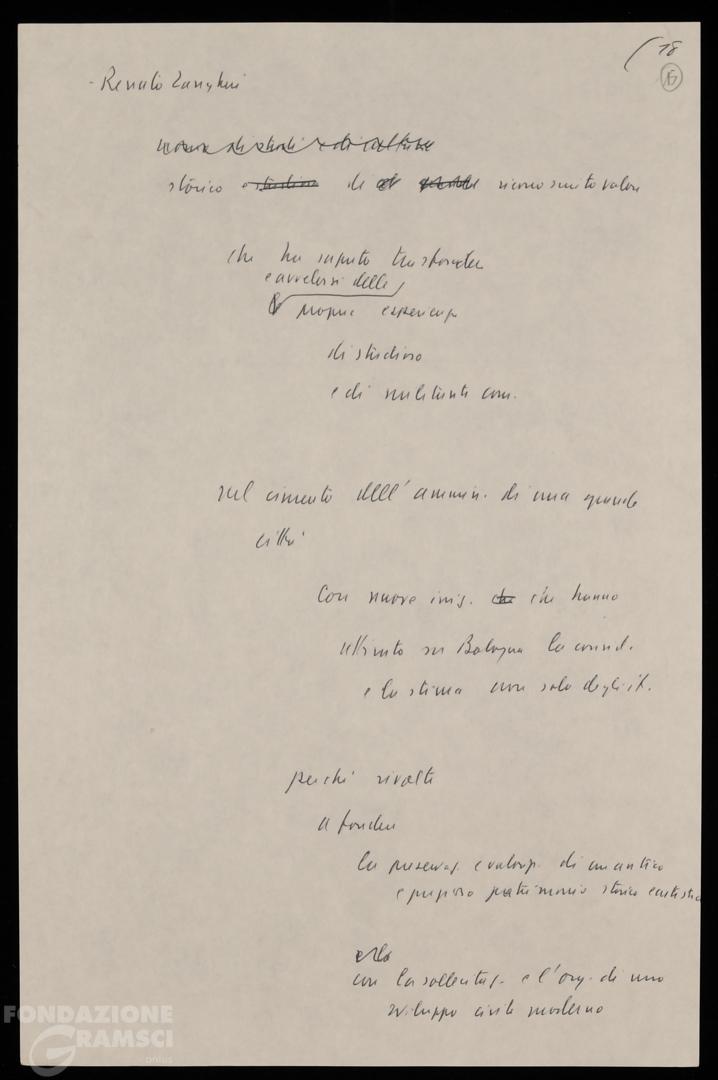 18
15
- Renato Zangheri
uomo di studi e di cultura
storico e studioso di riconosciuto valore
che ha saputo trasfondere
e avvalersi delle
propria esperienza
di studioso
e di militante com.
nel cimento dell'ammin. di una grande
città
con nuove iniz. che che hanno
attirato su Bologna la consid.
e la stima non solo degli it.
perché rivolte
a fondere
la preservaz. e valorizz. di un antico
e prezioso patrimonio storico e artistico
con la sollecitaz. e l'org. di uno
sviluppo civile moderno
FONDAZIONE
GRAMSCI
onlus